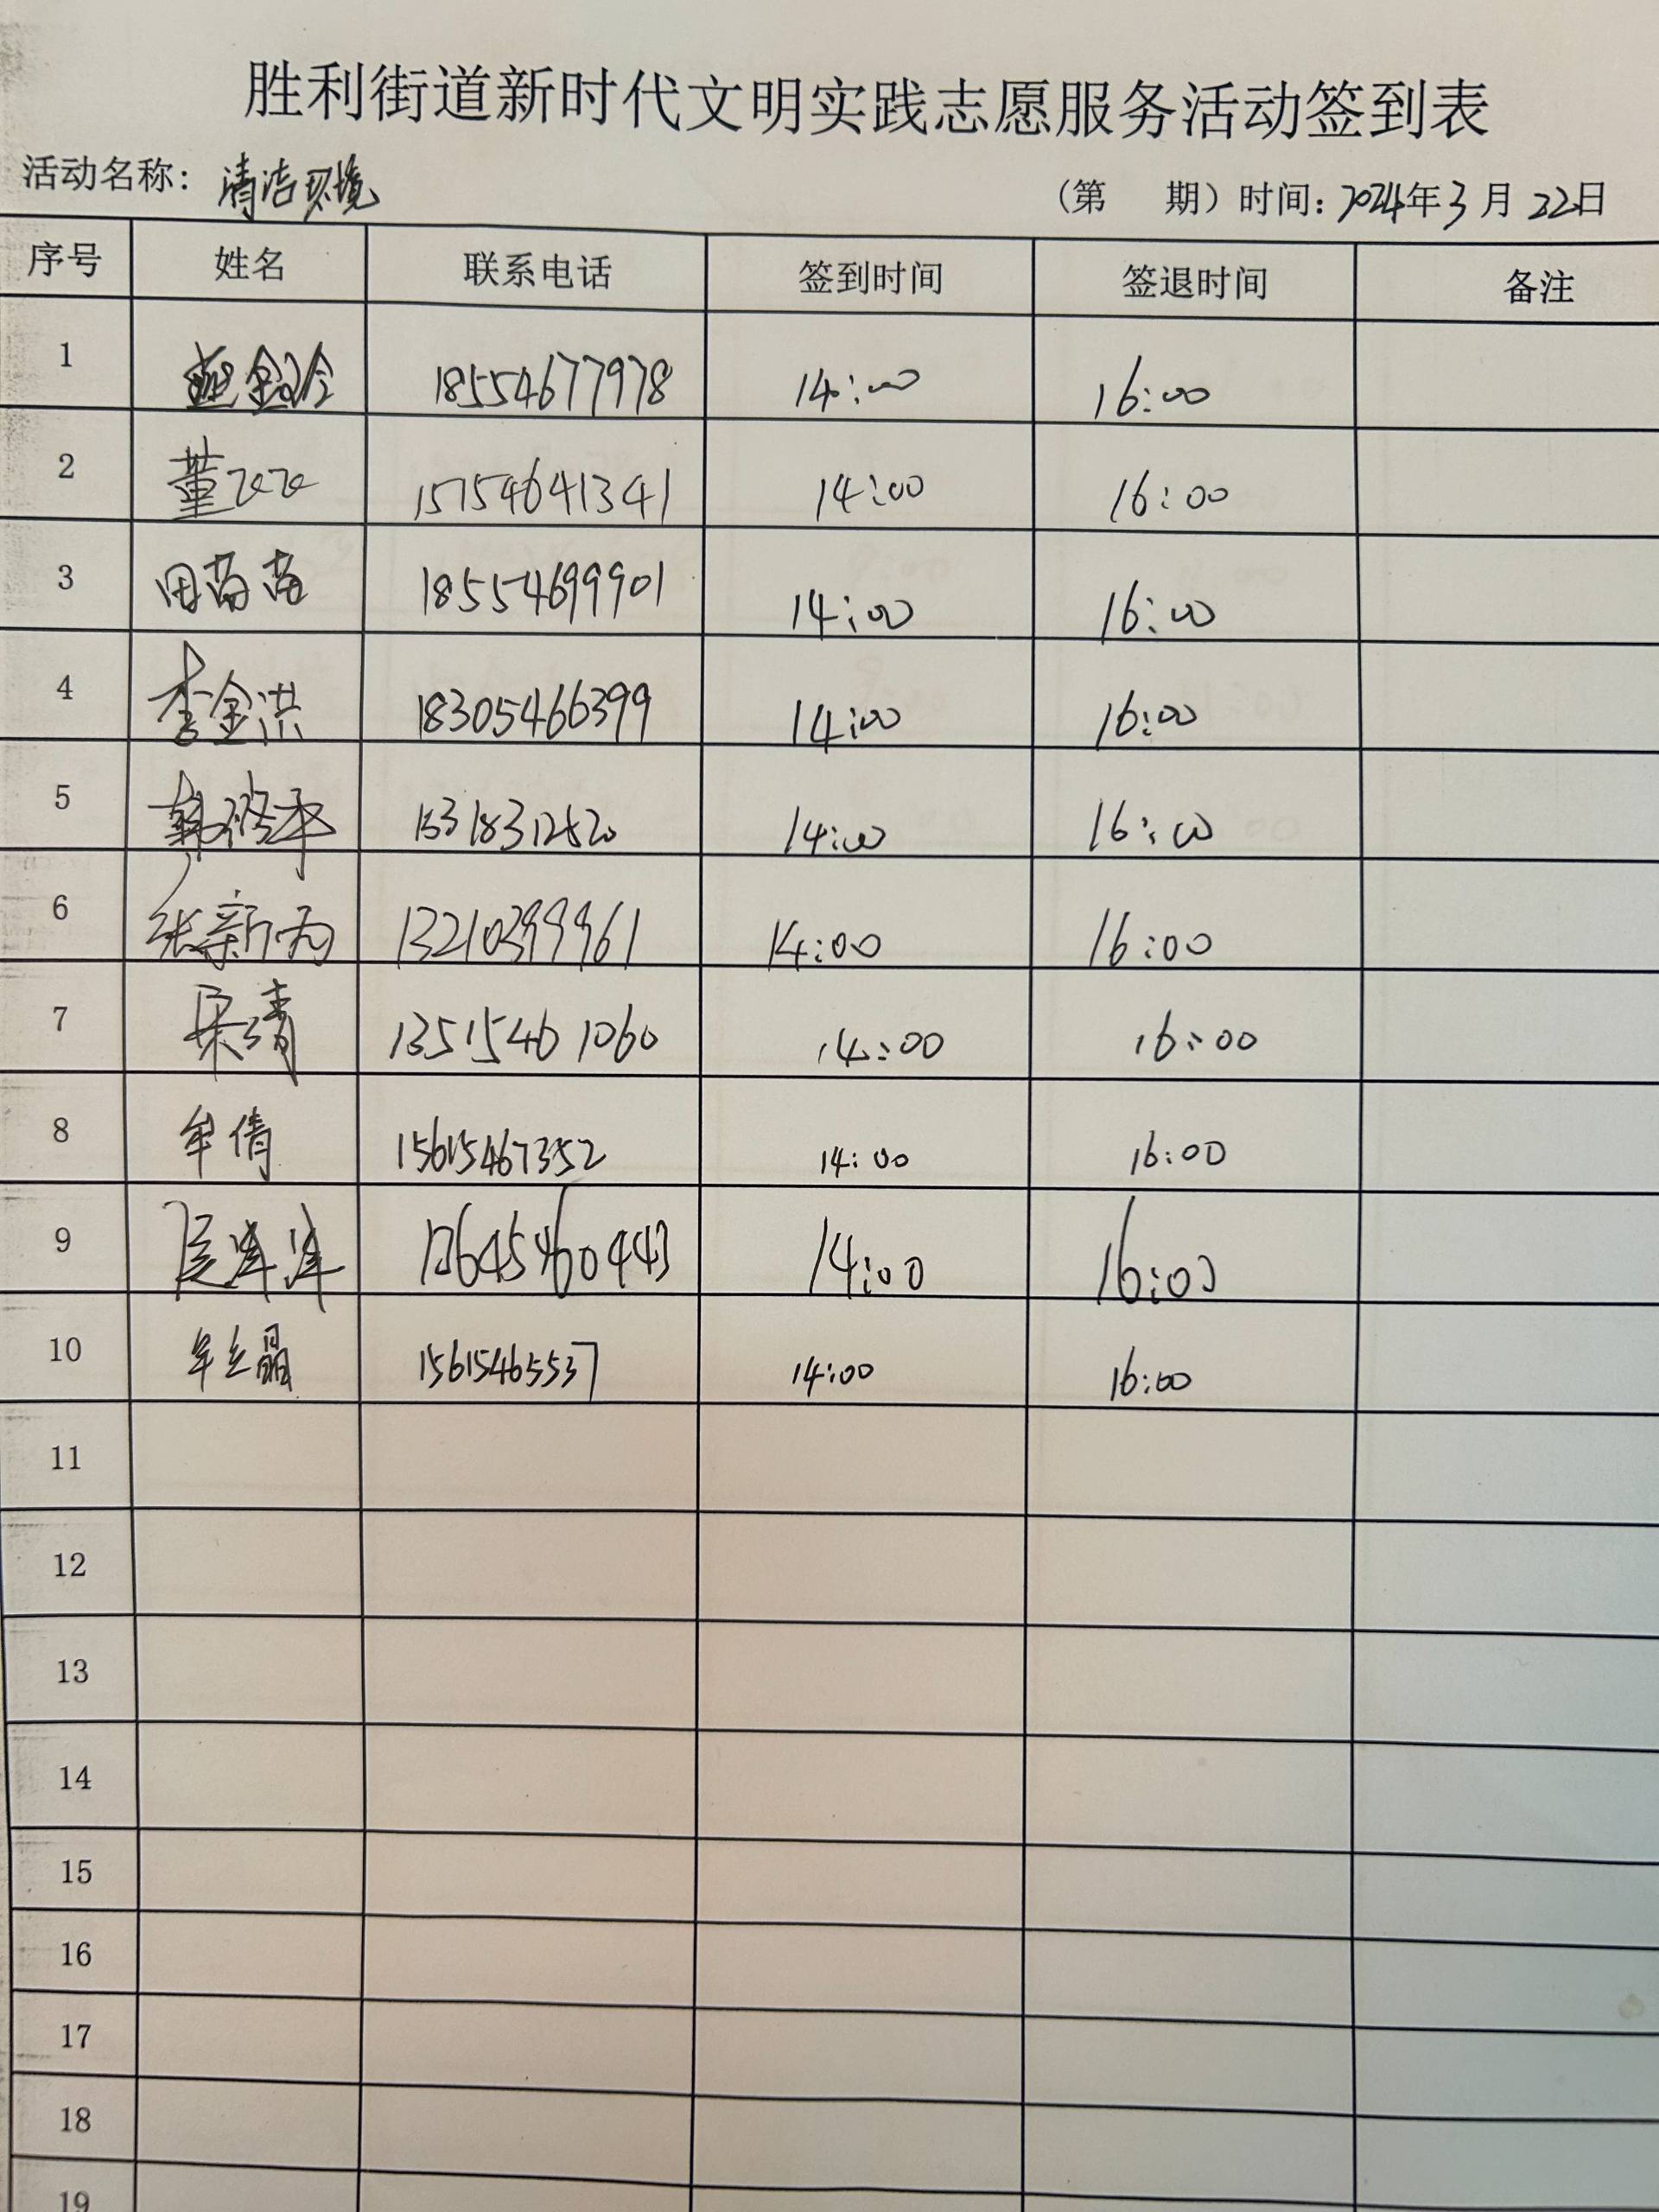 胜利街道新时代文明实践志愿服务活动签到表
活动名称：清洁环境 （第 期）时间：2024年3月22日
序号 姓名 联系电话 签到时间 签退时间 备注
1 赵金玲 18554677978 14:00 16:00
2 董 15754641341 14:00 16:00
3 田苗苗 18554699901 14:00 16:00
4 李金洪 18305466399 14:00 16:00
5 14:00 16:00
6 张新 13210399961 14:00 16:00
7 13515461060 14:00 16:00
8 牟倩 15615467352 14:00 16:00
9 14:00 16:00
10 牟 晶 15615465537 14:00 16:00
11
12
13
14
15
16
17
18
19